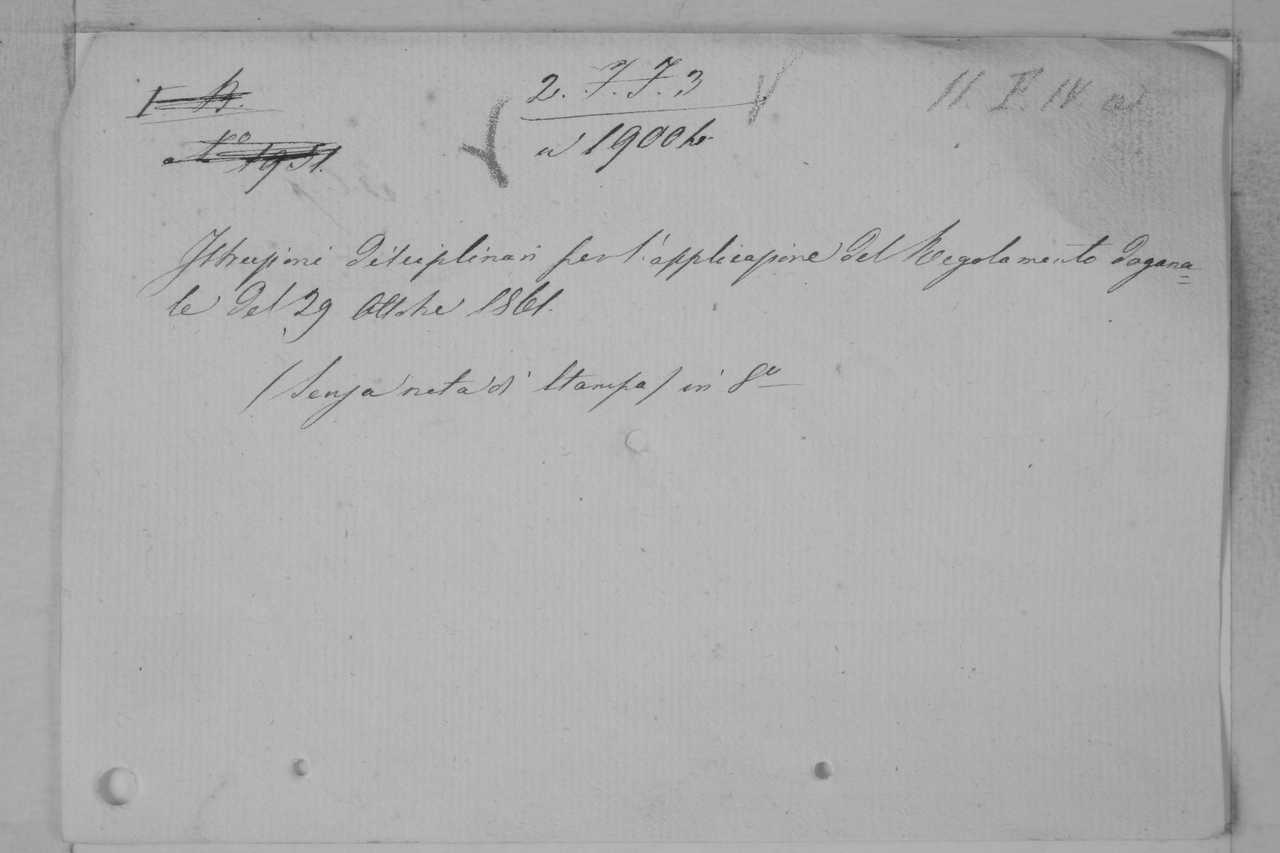 2. 7. 7. 3
a 1900 b
II. F. IV. a
Istruzioni disciplinari per l'applicazione del Regolamento dogana=
le del 29 Ottobre 1861.
(Senza nota di Stampa) in 8º